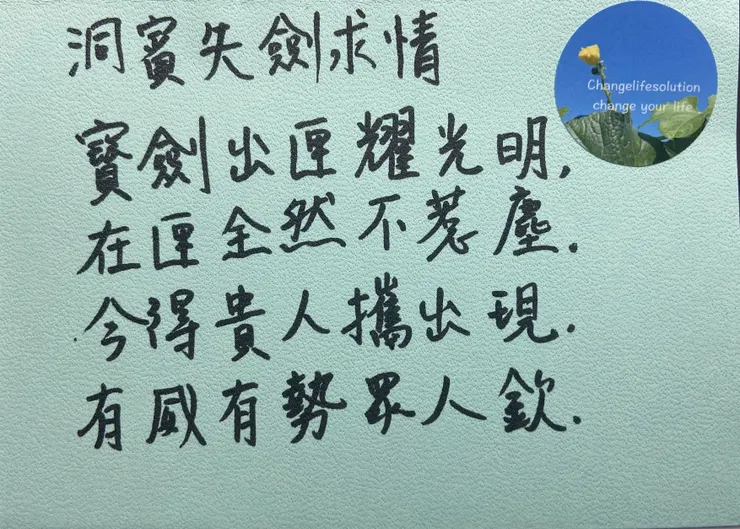 洞賓失劍求情
Changelifesolution
change your life
寶劍出匣耀光明,
在匣全然不惹塵.
今得貴人攜出現.
有威有勢眾人欽.